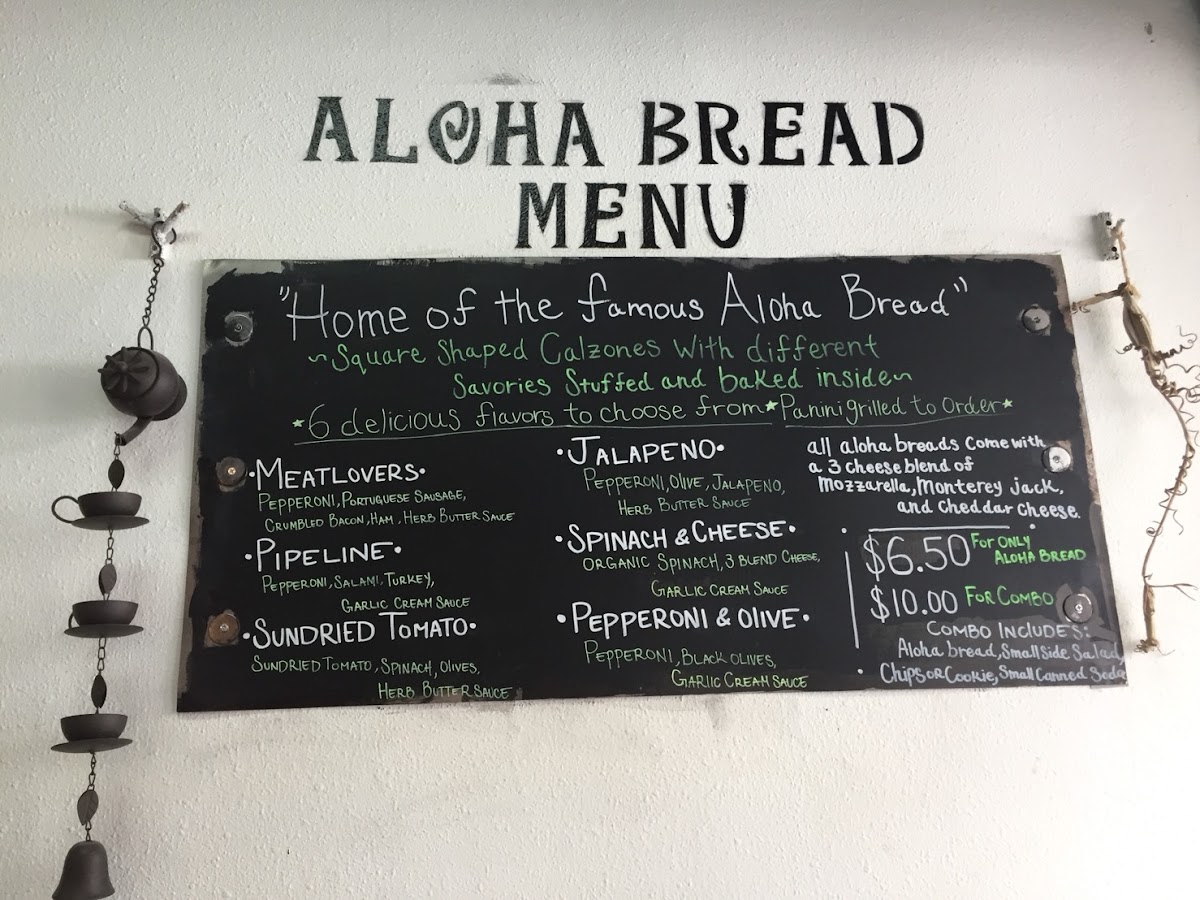 ALOHA BREAD
MENU
"Home of the famous Aloha Bread"
~Square Shaped Calzones With different
Savories Stuffed and baked inside~
*6 delicious flavors to choose from*Panini grilled to Order*
•MEATLOVERS•
PEPPERONI, PORTUGUESE SAUSAGE,
CRUMBLED BACON, HAM, HERB BUTTER SAUCE
•PIPELINE•
PEPPERONI, SALAMI, TURKEY,
GARLIC CREAM SAUCE
•SUNDRIED TOMATO•
SUNDRIED TOMATO, SPINACH, OLIVES,
HERB BUTTER SAUCE
•JALAPENO•
PEPPERONI, OLIVE, JALAPENO,
HERB BUTTER SAUCE
•SPINACH & CHEESE•
ORGANIC SPINACH, 3 BLEND CHEESE,
GARLIC CREAM SAUCE
•PEPPERONI & OLIVE•
PEPPERONI, BLACK OLIVES,
GARLIC CREAM SAUCE
all aloha breads come with
a 3 cheese blend of
Mozzarella, Monterey jack,
and cheddar cheese.
$6.50 FOR ONLY
ALOHA BREAD
$10.00 FOR COMBO
COMBO INCLUDES:
Aloha bread, Small side Salad,
Chips or Cookie, Small Canned Soda